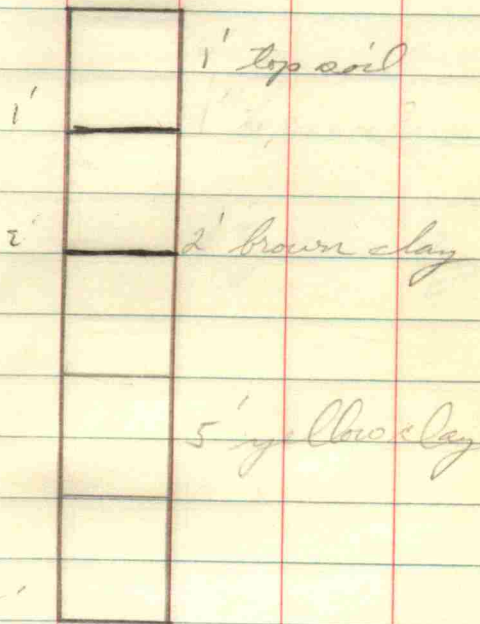 1' top soil
1'
2' 2' brown clay
5' yellow clay